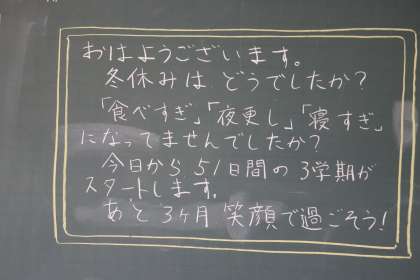 おはようございます。
冬休みは、どうでしたか？
「食べすぎ」「夜更し」「寝すぎ」
になってませんでしたか？
今日から51日間の3学期が
スタートします。
あと3ヶ月笑顔で過ごそう！